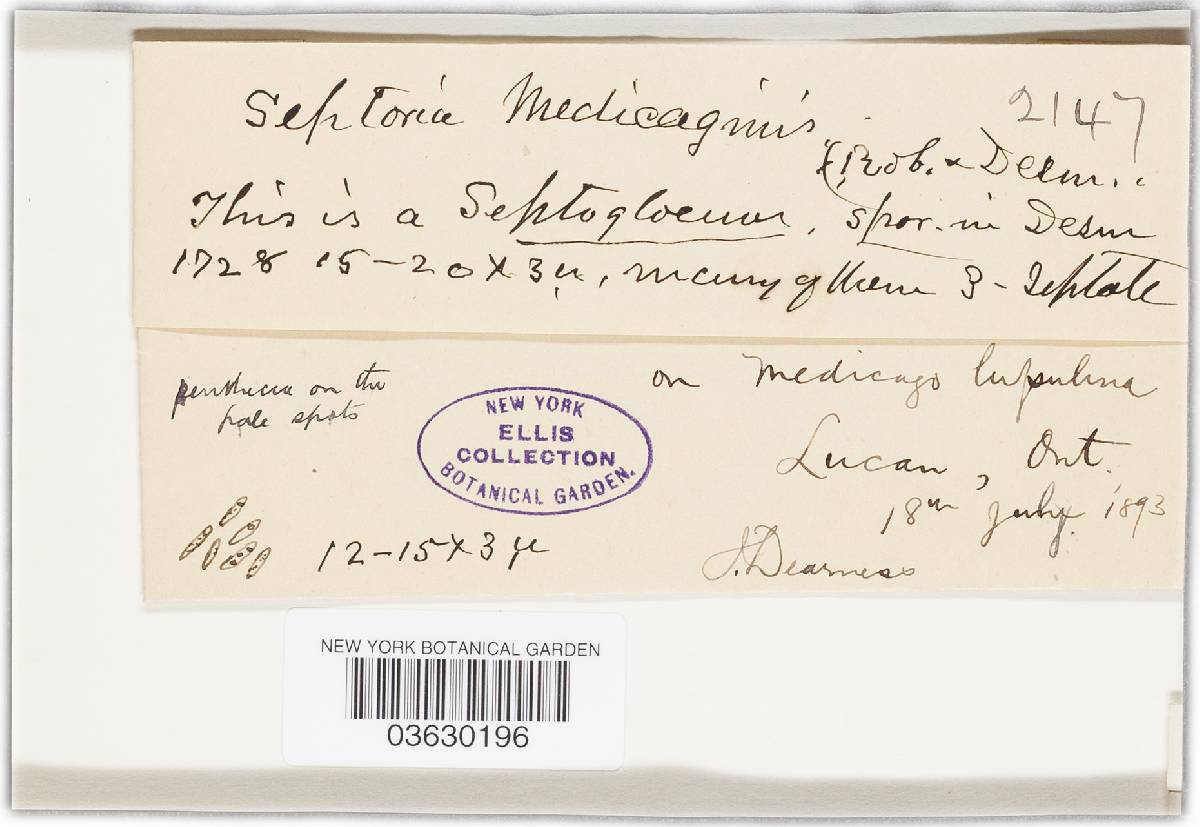 2147
Septoria Medicaginis
(Rob. & Desm.
This is a Septogloeum, spor. in Desm
1728 15-20 x 3 µ, many of them 3-septate
perithecia on the
pale spots
on Medicago lupulina
Lucan, Ont.
18th July. 1893
J. Dearness
12-15 x 3 µ
NEW YORK
ELLIS
COLLECTION
BOTANICAL GARDEN.
NEW YORK BOTANICAL GARDEN
03630196